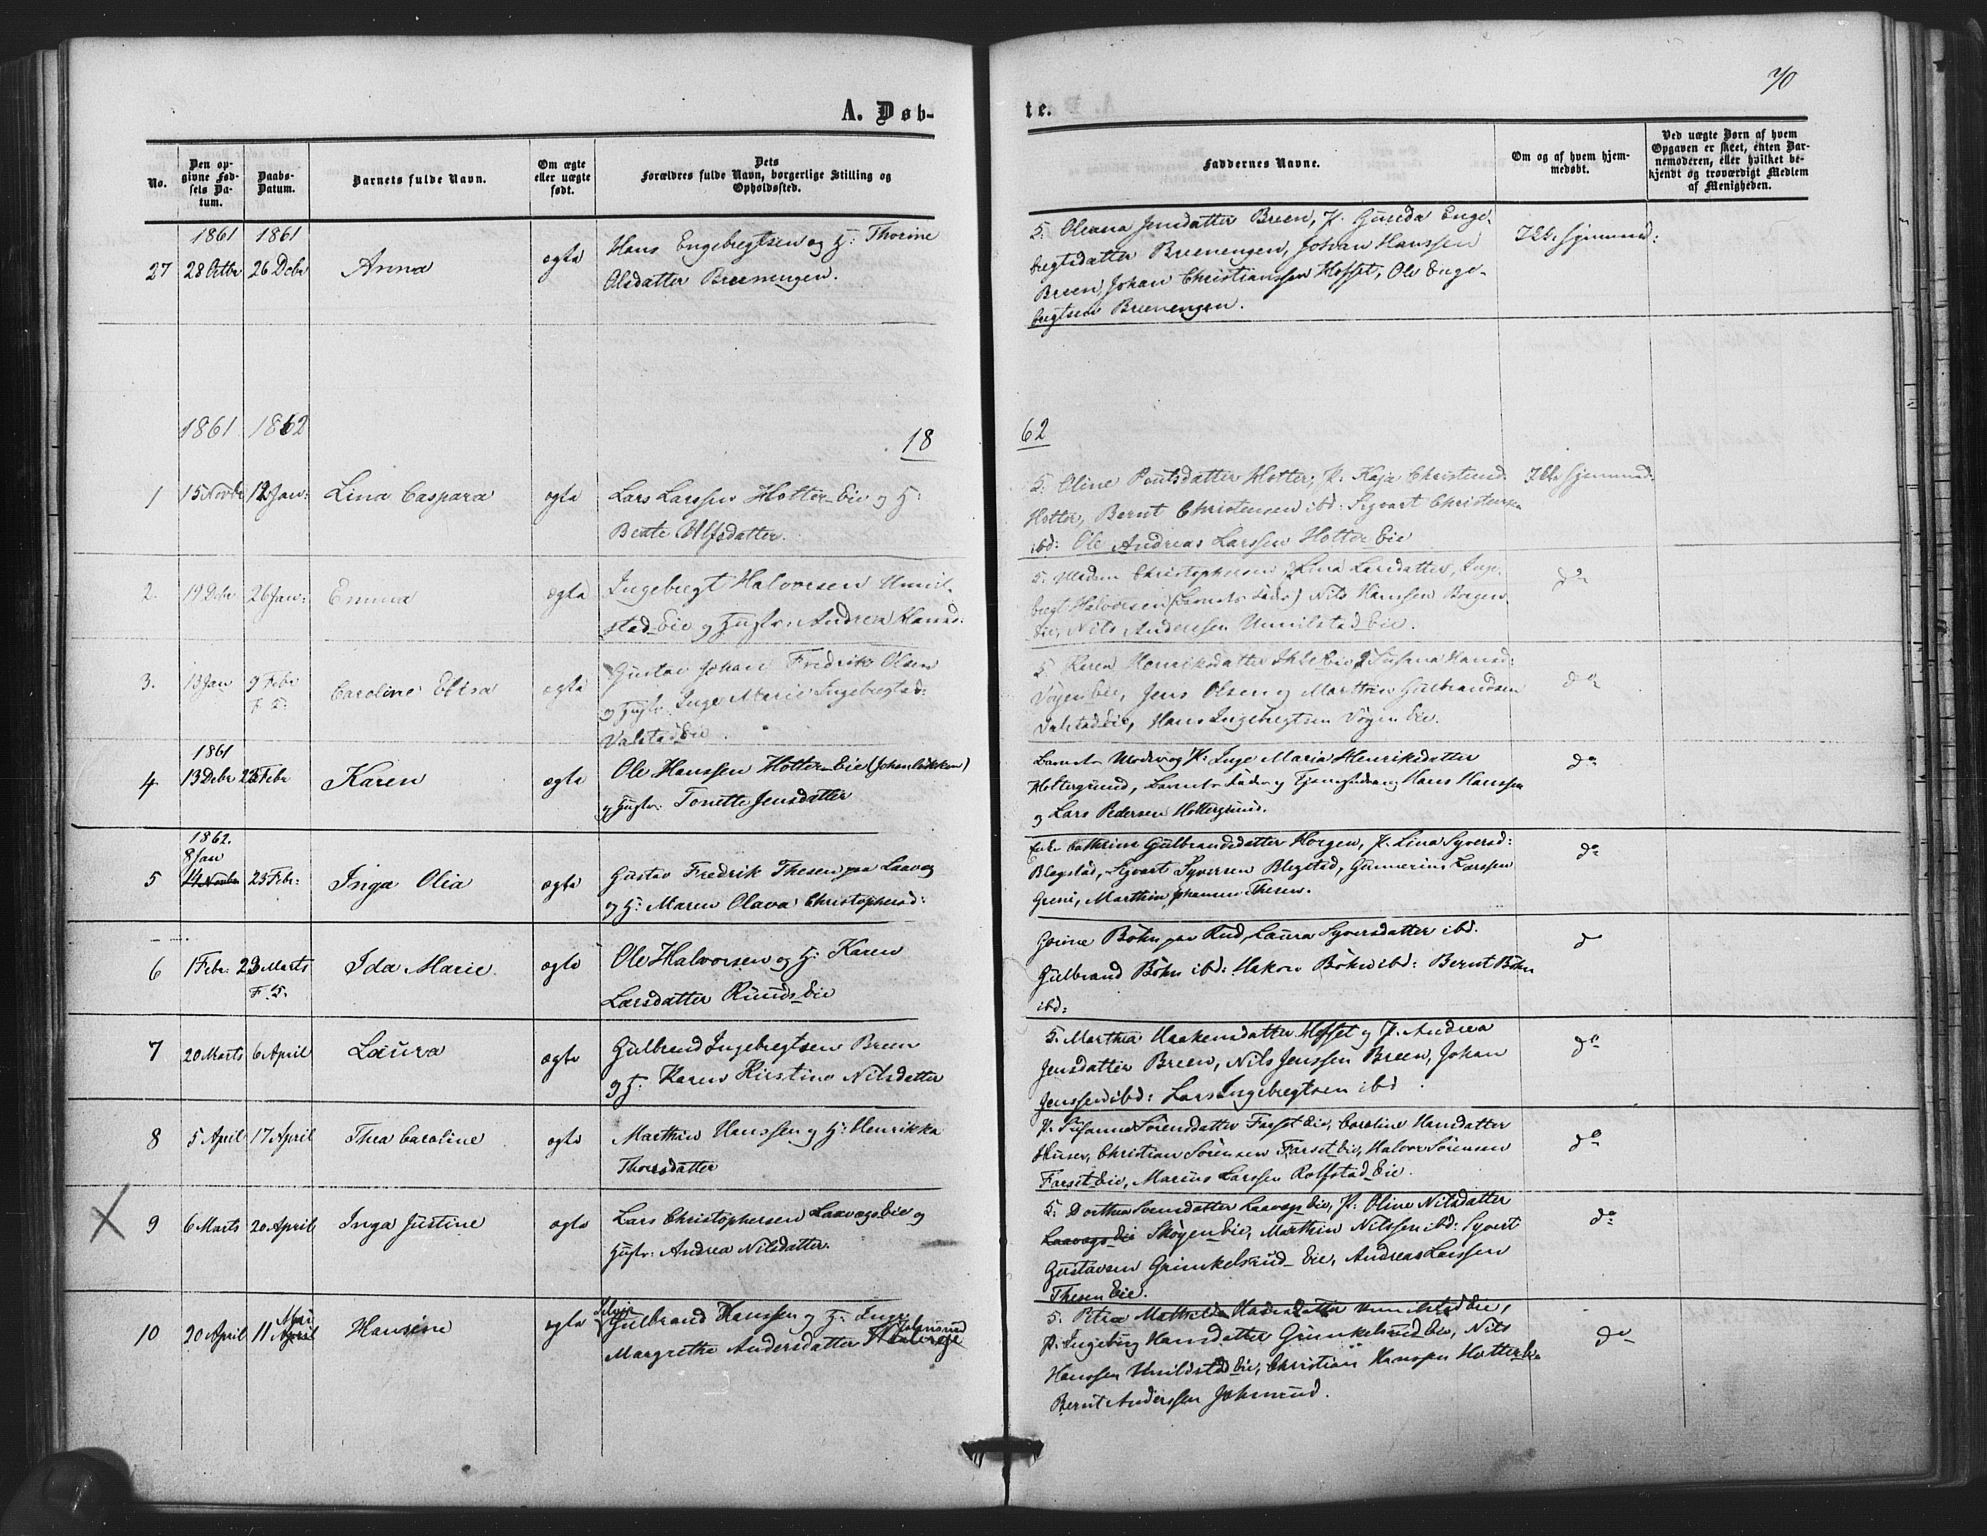 70
A. Døb-
te.
No.
Den op-
givne Fød-
sels Da-
tum.
Daabs-
Datum.
Barnets fulde Navn.
Om ægte
eller uægte
født.
Dets
Forældres fulde Navn, borgerlige Stilling og
Opholdssted.
Faddernes Navne.
Om og af hvem hjem-
medøbt.
Ved uægte Børn af hvem
Opgaven er skeet, enten Bar-
nemoderen, eller hvilket be-
kjendt og troværdigt Medlem
af Menigheden.
1861 1861
27 28 Octbr 26 Debr Anna ægte
Hans Engebregtsen og H: Thorine
Olsdatter Breenengen.
Oleana Jensdatter Breen, P. Gunda Enge-
bregtsdatter Breenengen, Johan Hanssen
Breen, Johan Christianssen Hofset, Ole Enge-
bregtsen Breenengen.
1861 1862
18
62
1 15 Novbr 12 Jan: Lina Caspara ægte
Lars Larssen Hotter-Eie og H:
Beate Ulfsdatter.
Oline Poulsdatter Hotter, P. Kaja Christensd.
Hotter, Bernt Christensen ibd. Sigvart Christensen
ibd: Ole Andreas Larssen Hotter Eie
2. 19 Debr 26 Jan: Emma ægte
Ingebregt Halvorsen Unnil-
stad-Eie og Hustr: Andrea Hansd:
Madam Christophersen, P. Lina Larsdatter, Inge-
bregt Halvorsen (Barnets Fader) Nils Hanssen
Eie, Nils Anderssen Unnilstad-Eie.
do
3. 13 Jan 9 Febr Caroline Elisa ægte
F. T.
Gustav Johan Fredrik Olsen
og Hustr: Inge Marie Ingebregtsd:
Valstad Eie
Karen Henriksdatter Ihle Eie, P. Susana Hansd:
Vøyen Eie, Jens Olsen og Marthin Gulbrandsen
Valstad Eie, Hans Ingebregtsen Vøyen Eie.
do
1861
4 13 Debr 23 Febr Karen ægte
Ole Hanssen Hotter-Eie (Johanløkken)
og Hustr: Tonette Jensdatter
Barnets Moder og P. Inge Maria Henriksdatter
Hottergrund, Barnets Fader og Hans Hanssen
og Lars Pedersen Hottergrund.
do
1862.
8 Jan
5 14 Novbr 23 Febr: Inga Olia ægte
Gustav Fredrik Thesen paa Laavog
og H: Maren Olava Christophersd:
Enke Cathrine Gulbrandsdatter Horgen, P. Lina Syversd:
Blegstad, Sigvart Syversen Blegstad, Gunnerius Larssen
Greni, Marthin Johannes Thesen.
do
6 1 Febr: 23 Marts Ida Marie. ægte
F. T.
Ole Halvorsen og H: Karen
Larsdatter Ruuds Eie
Gorine Bøhn paa Rud, Laura Syversdatter ibd.
Gulbrand Bøhn ibd: Hakon Bøhn ibd: Bernt Bøhn
ibd:
do
7 20 Marts 6 April Laura ægte
Gulbrand Ingebregtsen Breen
og H: Karen Kirstine Nilsdatter
Marthea Haakensdatter Hofset og P. Andrea
Jensdatter Breen, Nils Jenssen Breen, Johan
Jenssen ibd: Lars Ingebregtsen ibd
do
8 5 April 17 April Thea Caroline ægte
Marthin Hanssen og H: Henrikka
Thorsdatter
P. Susanne Sørensdatter Farset Eie, Caroline Hansdatter
Huser, Christian Sørensen Farset Eie, Halvor Sørensen
Farset Eie, Marius Larssen Rolfstad Eie.
do
X
9 6 Marts 20 April Inga Justine ægte
Lars Christophersen Laavogs Eie og
Hustr: Andrea Nilsdatter.
Dorthea Svensdatter Laavogs Eie, P. Oline Nilsdatter
Laavogs Eie Skøyen Eie, Marthin Nilssen ibd: Syvert
Gustavsen Grimkelsrud Eie, Andreas Larssen
Thesen Eie.
do
Mai
10 20 April 11 April Hansine ægte
Selvei
Gulbrand Hanssen og H: Inge
Johnsrud
Margrethe Andersdatter
Petra Mathilde Hansdatter Unnilstad Eie,
P. Ingeborg Hansdatter Grimkelsrud Eie, Nils
Hanssen Unnilstad Eie, Christian Hanssen Hotter Eie
Bernt Anderssen Johnsrud.
do